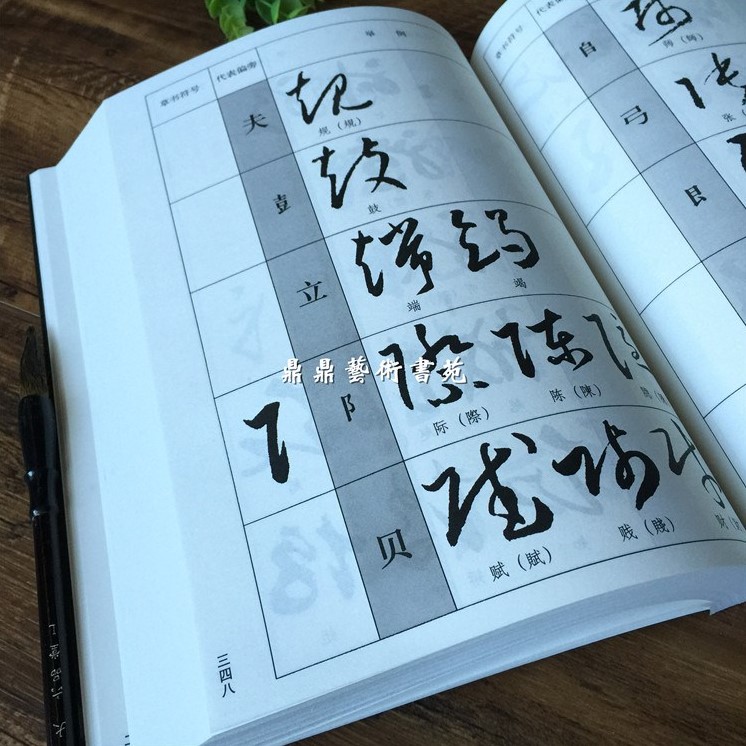 草书符号 代表偏旁 举例
夫 规（規）
鼓
立 端 竭
阝 际（際） 陈（陳）
贝 赋（賦） 贱（賤） 财
三四八
草书符号 代表偏旁
自
弓 张
艮
鼎鼎藝術書苑